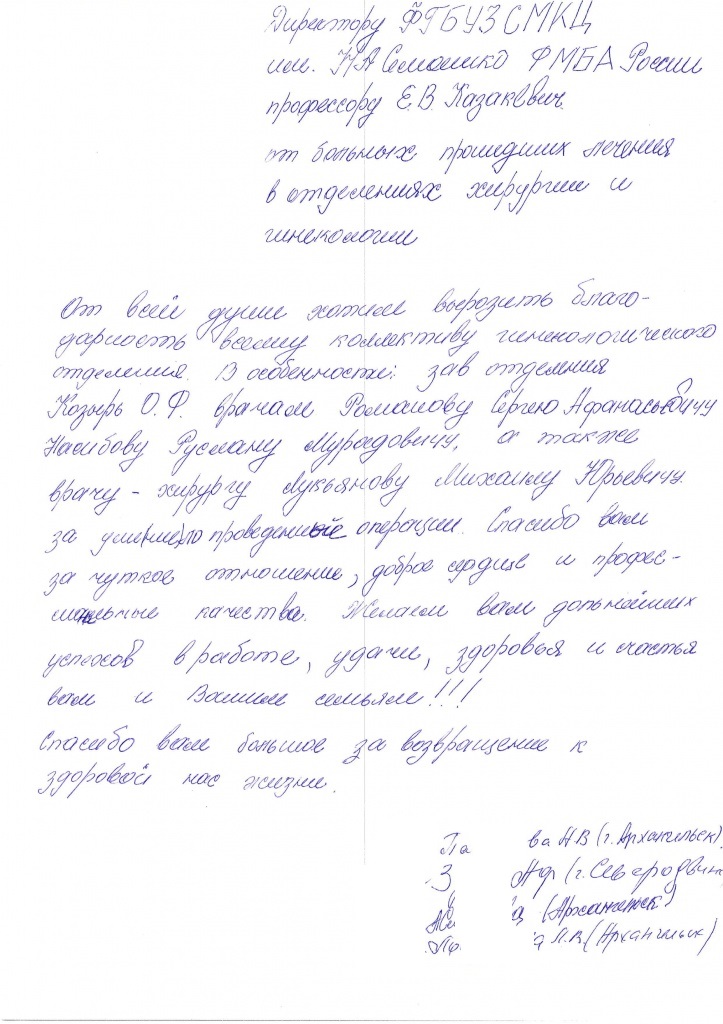 Директору ФГБУЗ СМКЦ
им. Н А Семашко ФМБА России
профессору Е.В. Казакевич.
от больных прошедших лечения
в отделениях хирургии и
гинекологии
От всей души хотим вырозить благо-
дарность всему коллективу гинекологического
отделения. В особенности: зав отделения
Козырь О.Ф. врачам Романову Сергею Афанасьевичу
Насибову Руслану Мурадовичу, а также
врачу - хирургу Лукьянову Михаилу Юрьевичу
за проведенные операции. Спасибо вам
за чуткое отношение, доброе сердце и профес-
качества. Желаем вам дольнейших
успехов в работе, удачи, здоровья и счастья
вам и Вашим семьям!!!
Спасибо вам большое за возвращение к
здоровой нас жизни.
Па ва Н В (г. Архангельск).
З (г. Северодвинс
(Архангельск)
а Л.В. (Архангельск)